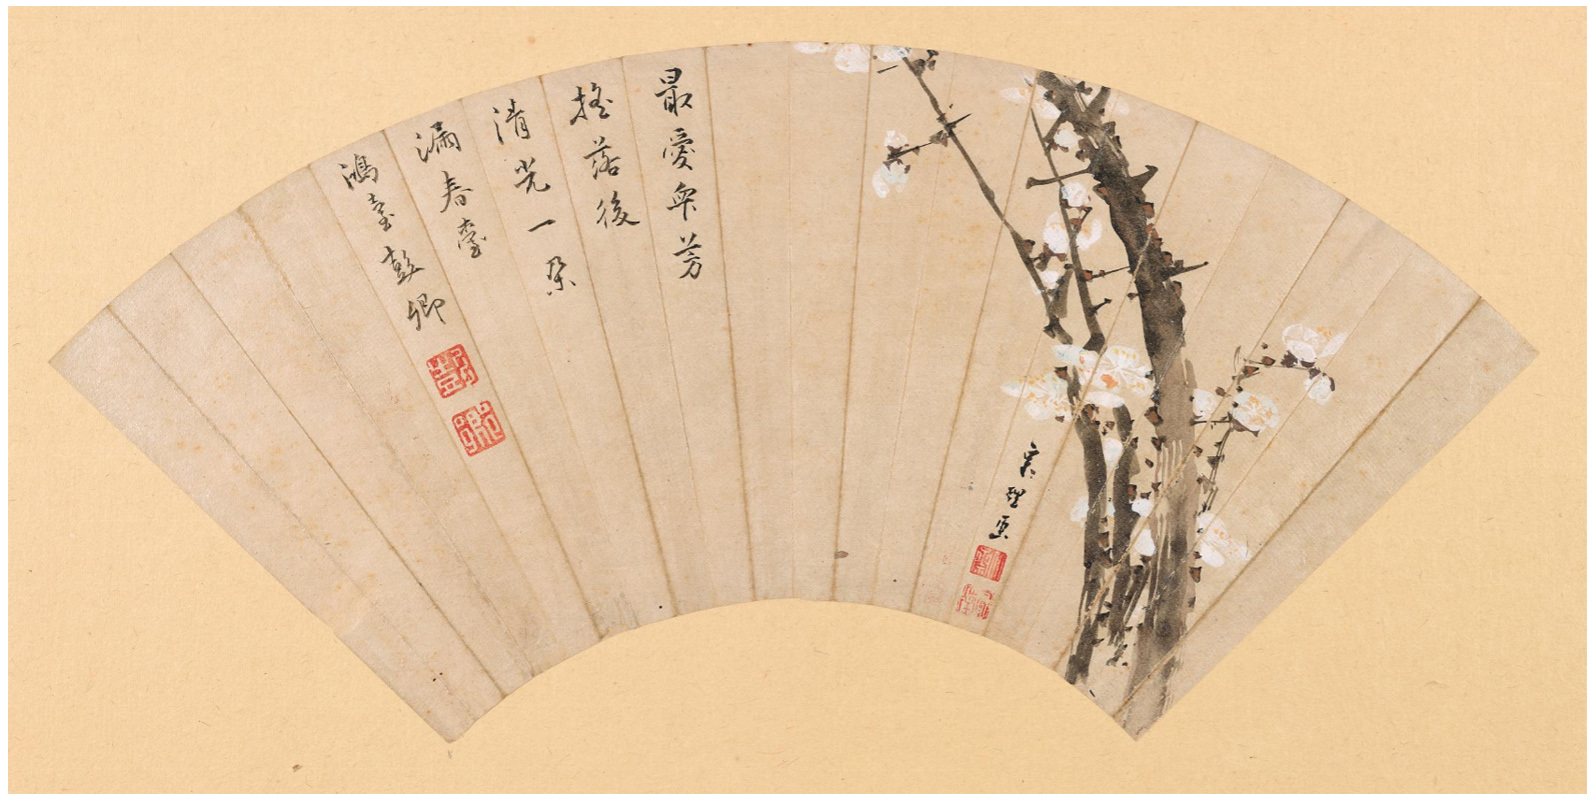 宗理画
最愛衆芳
搖落後
清光一朶
漏春臺
鴻臺彭卿